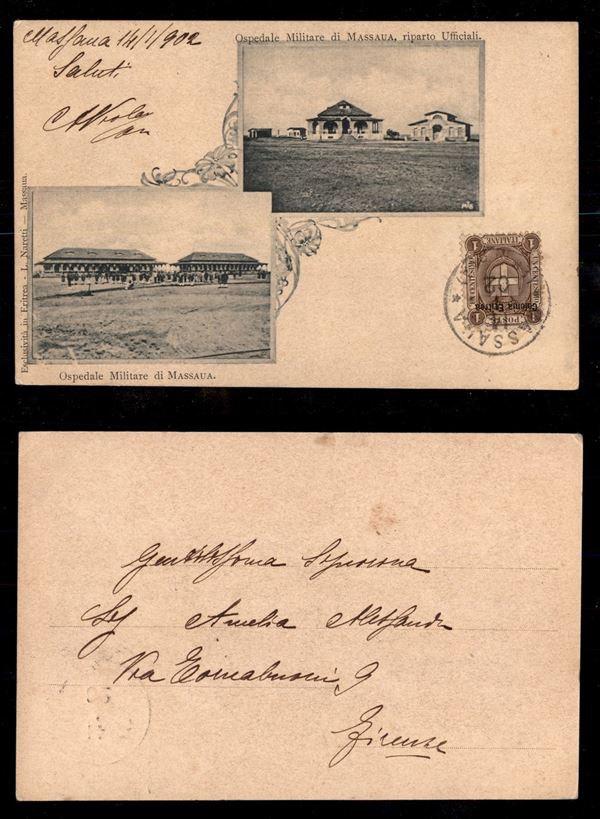 Massaua 14/1/902
Saluti
Ospedale Militare di MASSAUA, riparto Ufficiali.
Esclusività in Eritrea — L. Naretti — Massaua.
Ospedale Militare di MASSAUA.
1 1
POSTE ITALIANE
Colonia Eritrea
1 1
Gentilissima Signorina
Amelia
Via Tornabuoni, 9
Firenze